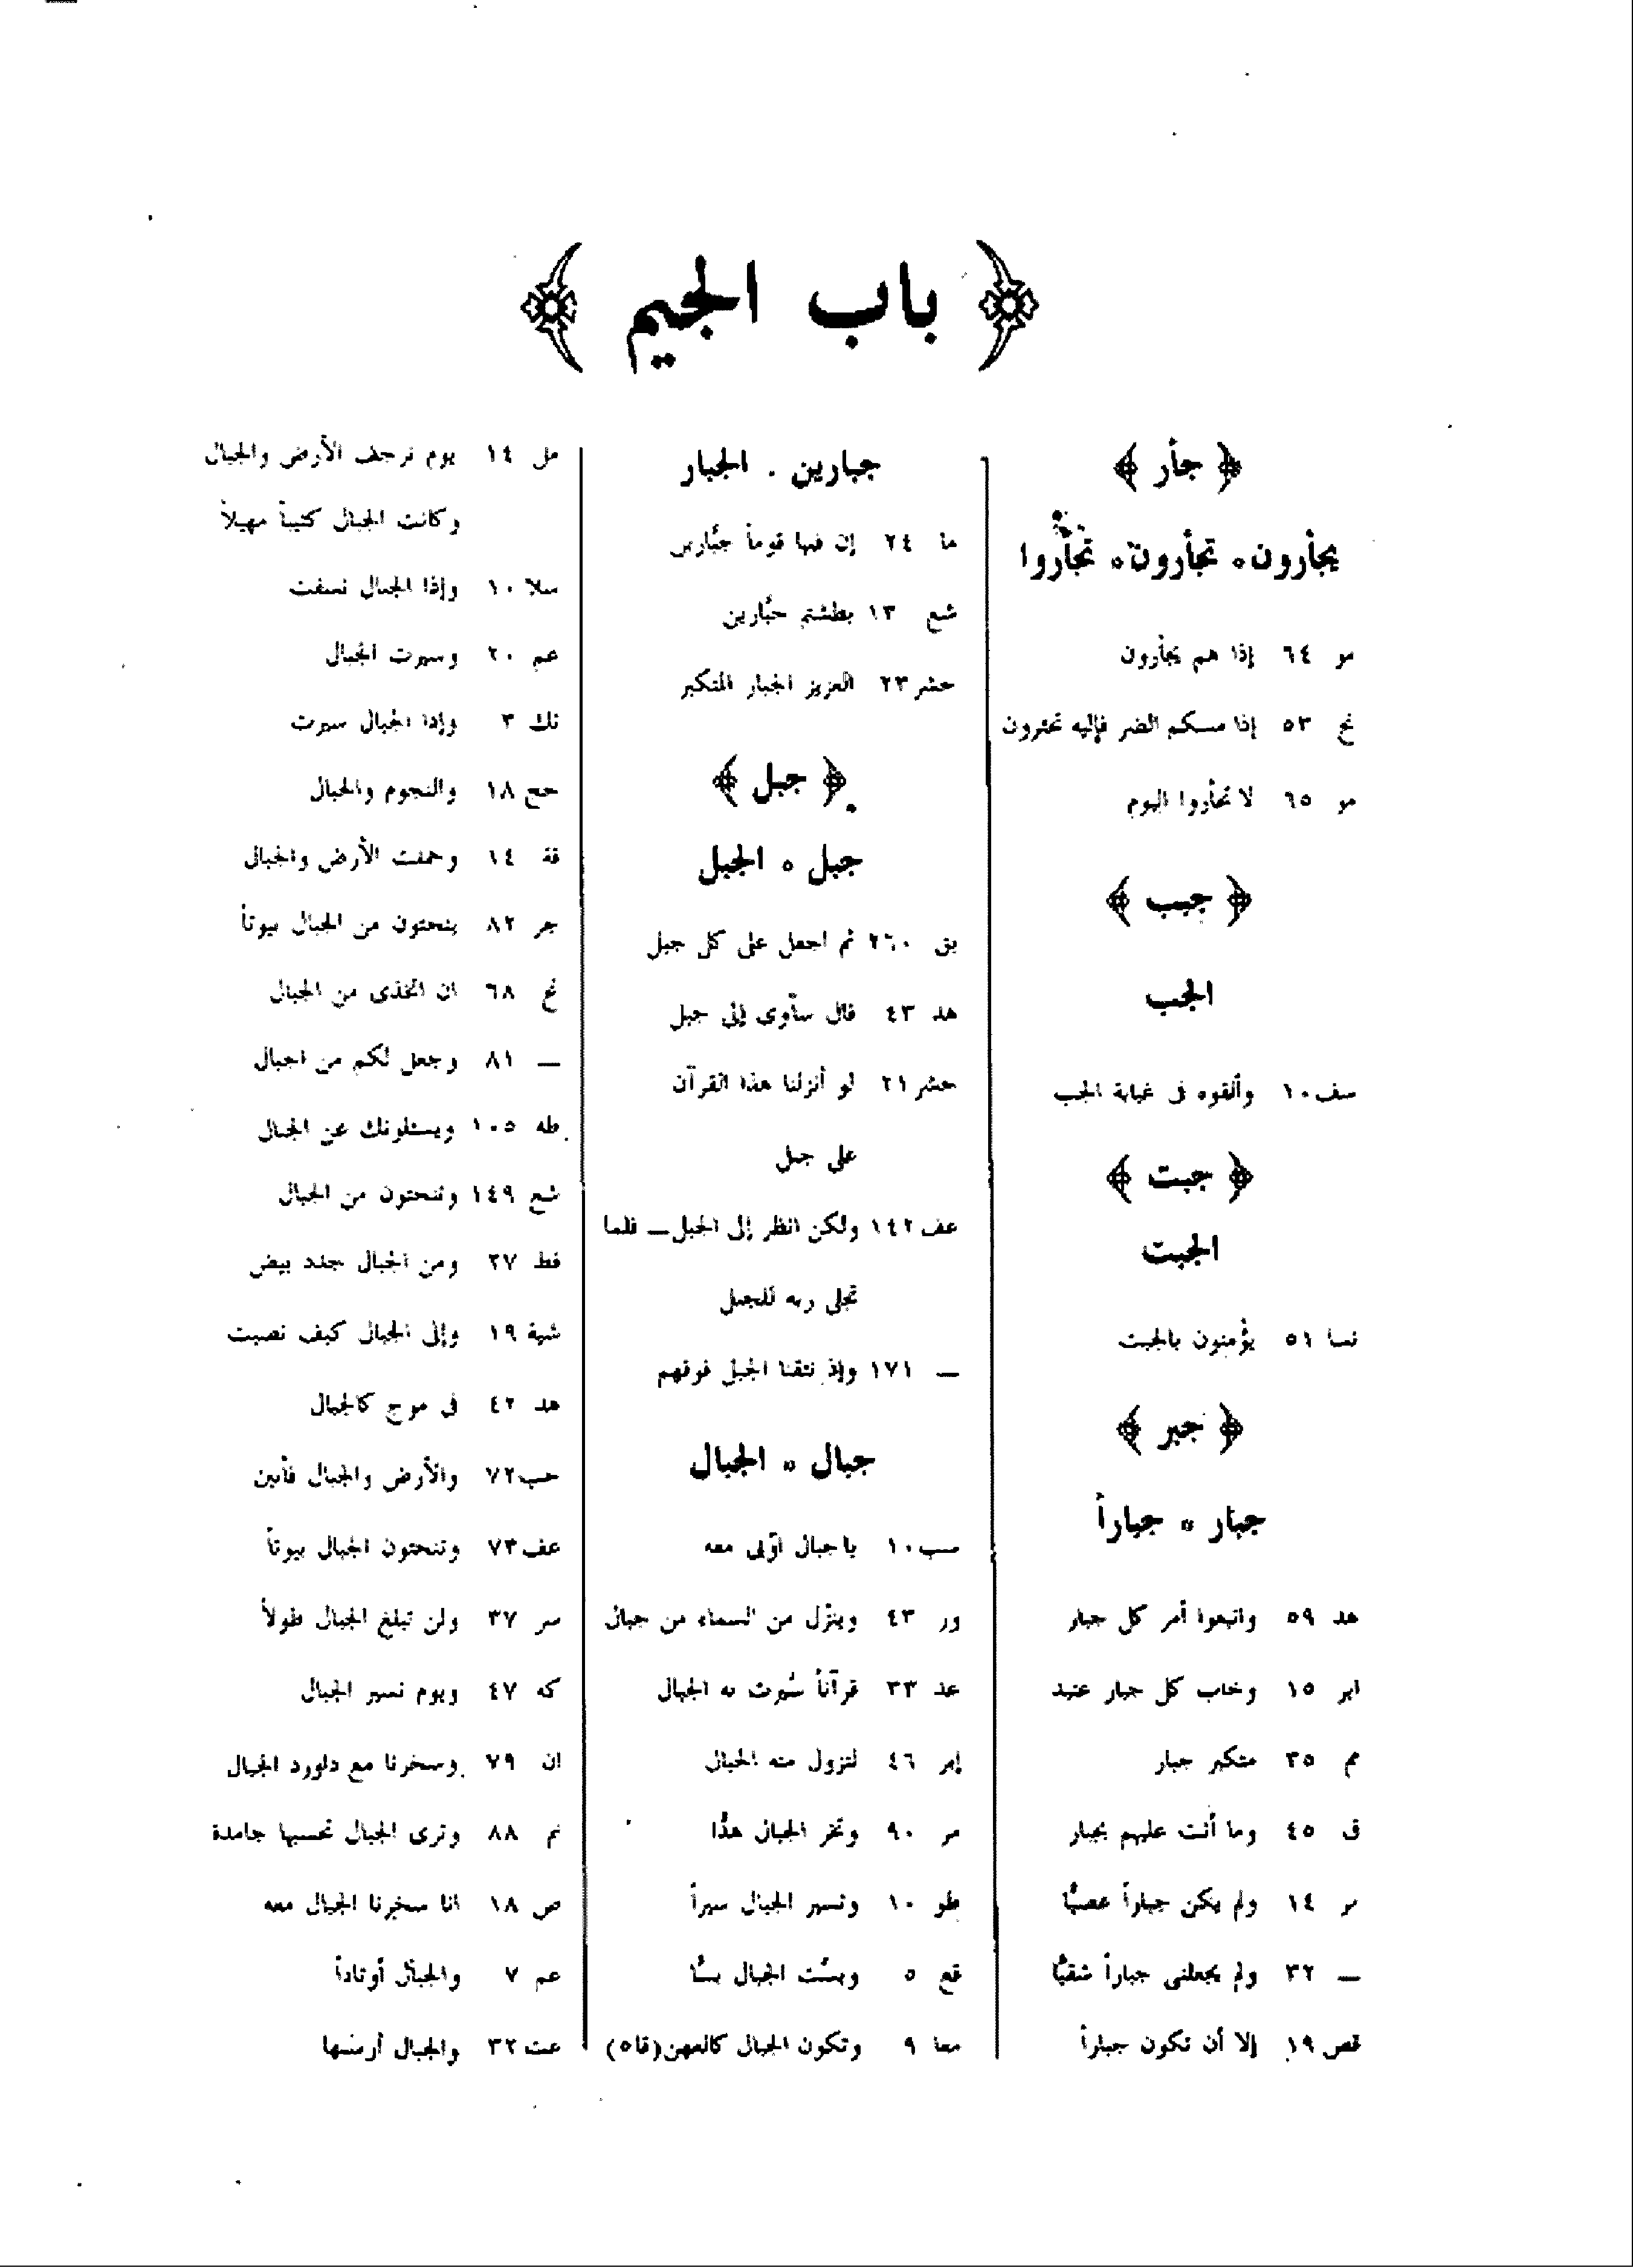 ﴿ باب الجيم ﴾
﴿ جأر ﴾
يجأرون ٥ تجأرون ٥ تجأروا
مو ٦٤ إذا هم يجأرون
نح ٥٣ إذا مسكم الضر فإليه تجئرون
مو ٦٥ لا تجأروا اليوم
﴿ جبب ﴾
الجب
سف ١٠ وألقوه فى غيابة الجب
﴿ جبت ﴾
الجبت
نسا ٥١ يؤمنون بالجبت
﴿ جبر ﴾
جبار ٥ جباراً
هد ٥٩ واتبعوا أمر كل جبار
ابر ١٥ وخاب كل جبار عنيد
مم ٣٥ متكبر جبار
ق ٤٥ وما أنت عليهم بجبار
مر ١٤ ولم يكن جباراً عصيًّا
ــ ٣٢ ولم يجعلنى جباراً شقيًّا
قص ١٩ إلا أن تكون جباراً
جبارين . الجبار
ما ٢٤ إن فيها قوماً جبَّارين
شع ١٣ بطشتم جبَّارين
حشر ٢٣ العزيز الجبار المتكبر
﴿ جبل ﴾
جبل ٥ الجبل
بق ٢٦٠ ثم اجعل على كل جبل
هد ٤٣ قال سآوى إلى جبل
حشر ٢١ لو أنزلنا هذا القرآن
على جبل
عف ١٤٢ ولكن انظر إلى الجبل ــ فلما
تجلى ربه للجبل
ــ ١٧١ وإذ نتقنا الجبل فوقهم
جبال ٥ الجبال
سب ١٠ يا جبال أوّبى معه
ور ٤٣ وينزّل من السماء من جبال
عد ٣٣ قرآناً سُيرت به الجبال
إبر ٤٦ لتزول منه الجبال
مر ٩٠ وتخر الجبال هدًّا
طو ١٠ وتسير الجبال سيراً
قع ٥ وبسَّت الجبال بسًّا
معا ٩ وتكون الجبال كالعهن (قا٥)
مل ١٤ يوم ترجف الأرض والجبال
وكانت الجبال كثيباً مهيلاً
سلا ١٠ وإذا الجبال نسفت
عم ٢٠ وسيرت الجبال
تك ٣ وإذا الجبال سيرت
حج ١٨ والنجوم والجبال
قة ١٤ وحملت الأرض والجبال
جر ٨٢ ينحتون من الجبال بيوتاً
نح ٦٨ ان اتخذى من الجبال
ــ ٨١ وجعل لكم من الجبال
طه ١٠٥ ويسئلونك عن الجبال
شع ١٤٩ وتنحتون من الجبال
فط ٢٧ ومن الجبال جدد بيض
شية ١٩ وإلى الجبال كيف نصبت
هد ٤٢ فى موج كالجبال
حب ٧٢ والأرض والجبال فأبين
عف ٧٣ وتنحتون الجبال بيوتاً
سر ٣٧ ولن تبلغ الجبال طولاً
كه ٤٧ ويوم نسير الجبال
ان ٧٩ وسخرنا مع داوود الجبال
نم ٨٨ وترى الجبال تحسبها جامدة
ص ١٨ انا سخرنا الجبال معه
عم ٧ والجبال أوتاداً
عت ٣٢ والجبال أرسها